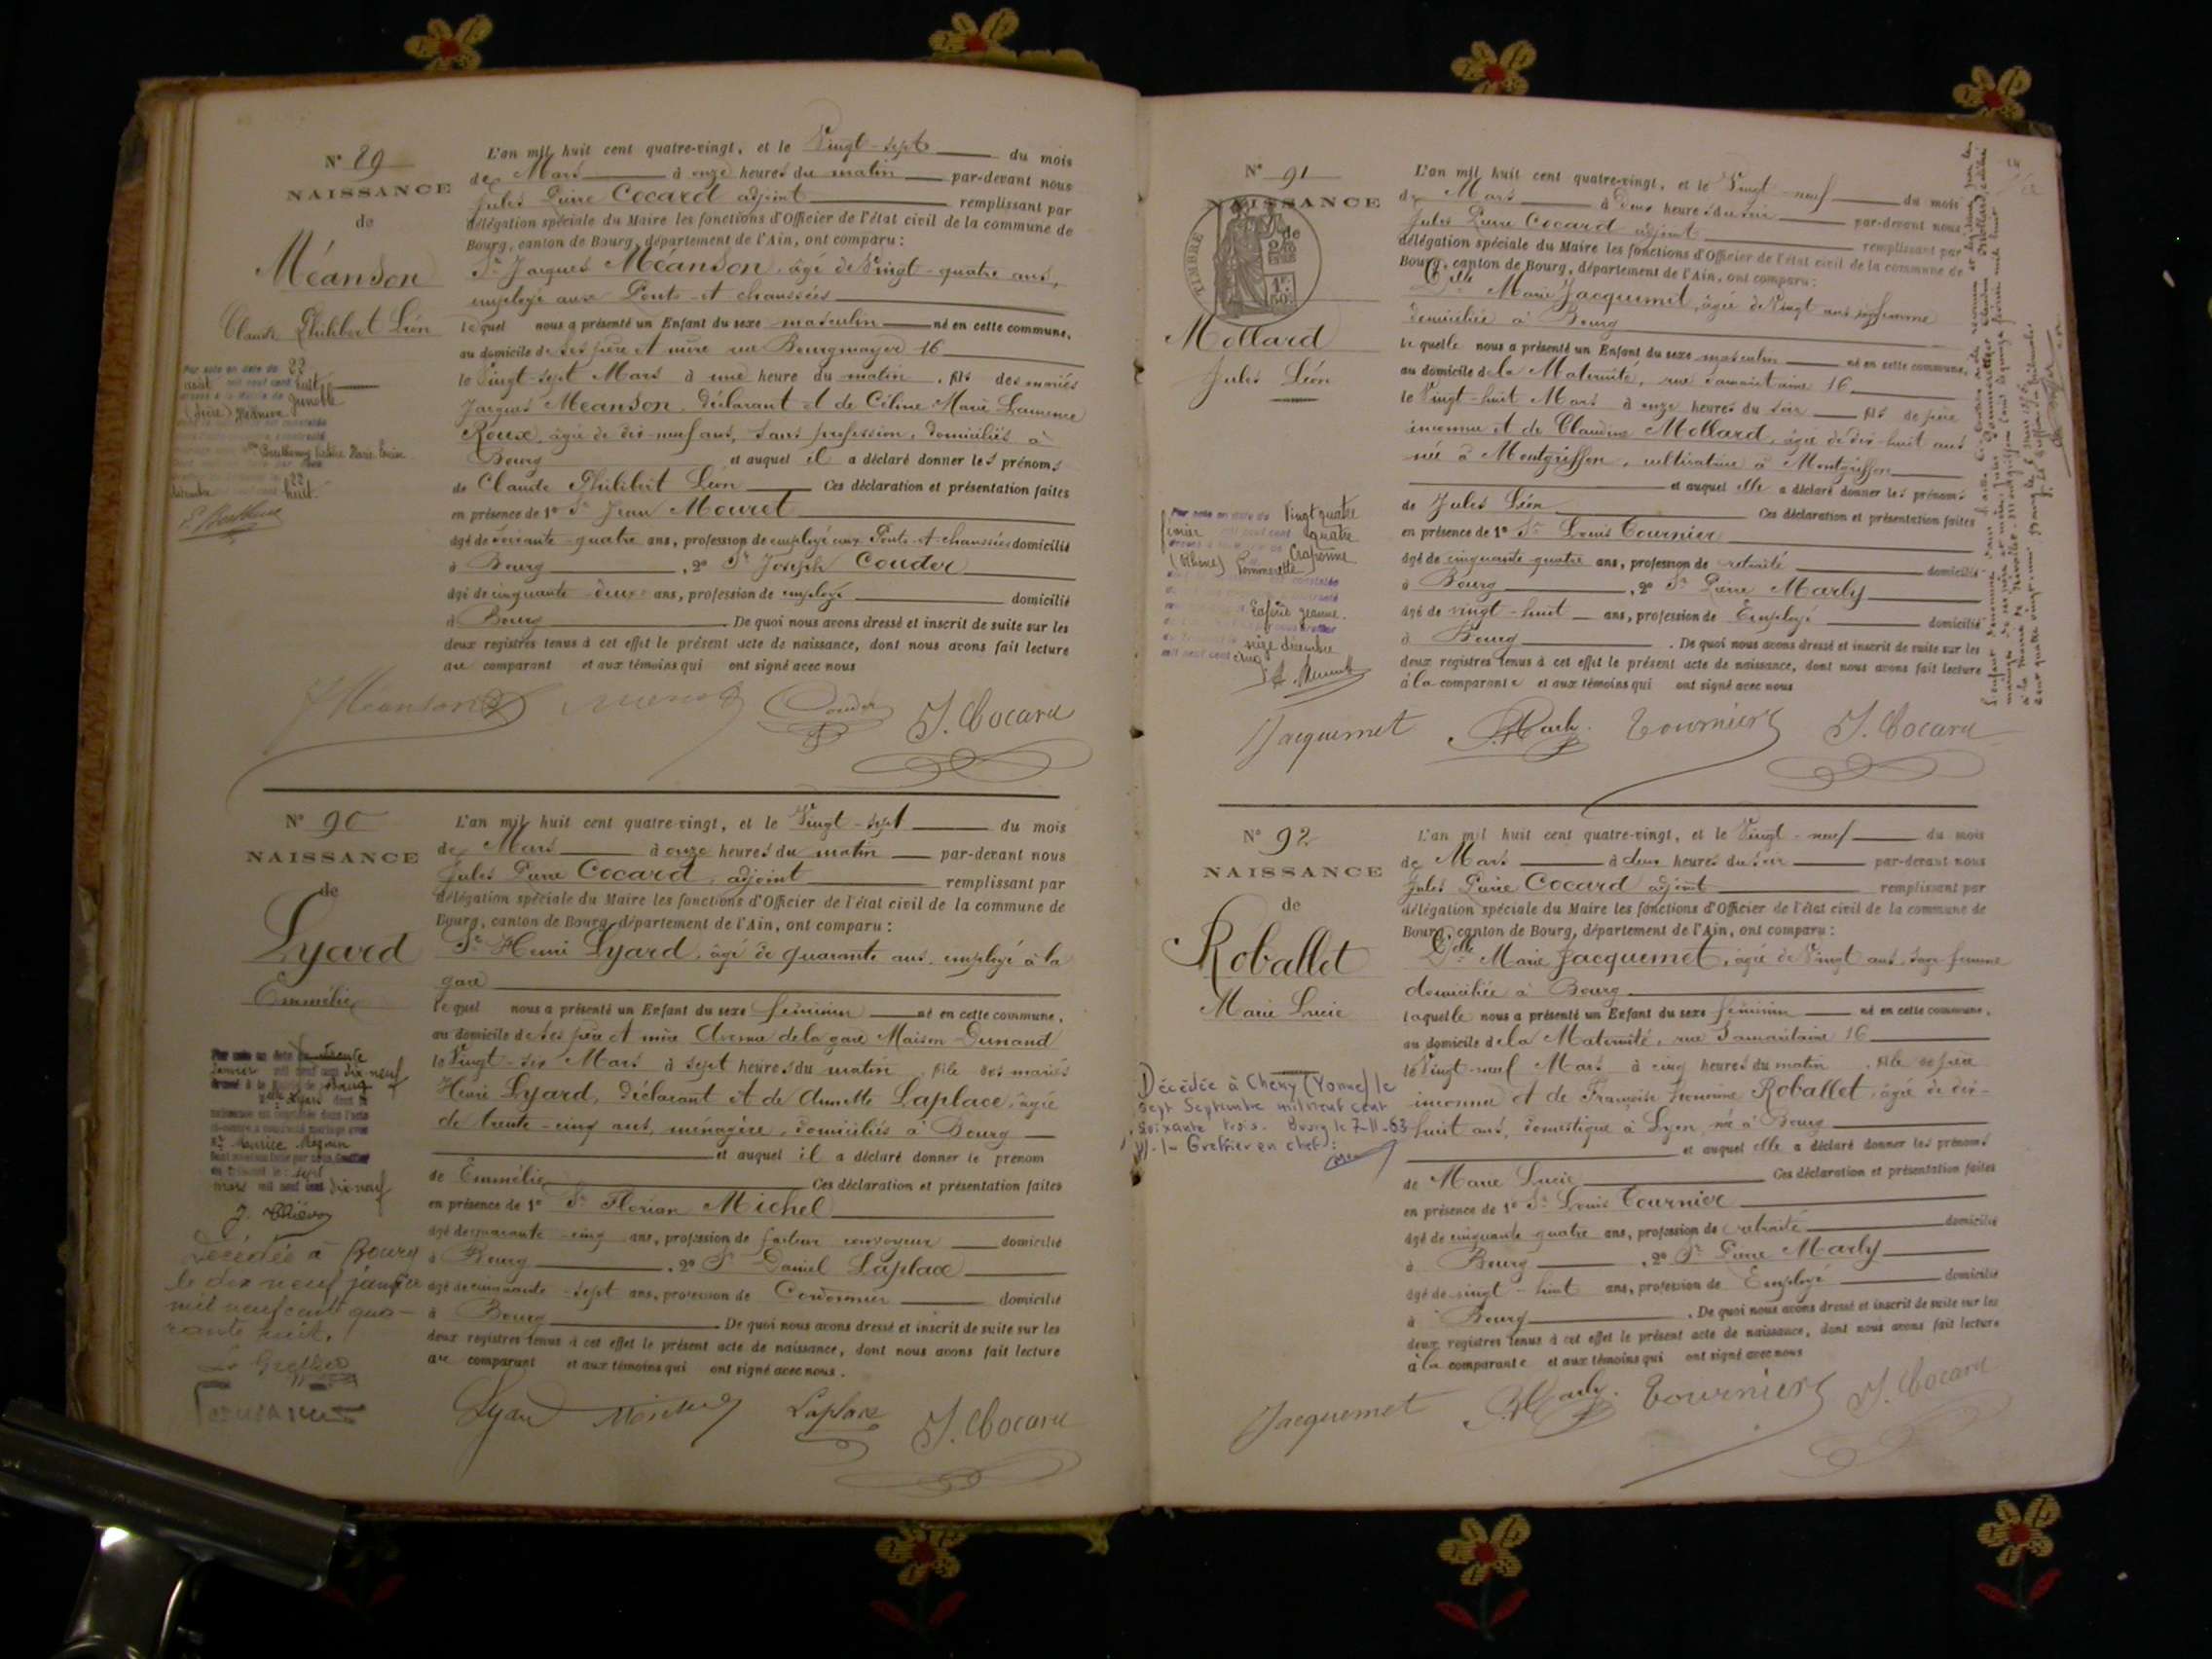 N° 89
NAISSANCE
de
Méanson
Claude Philibert Léon
L'an mil huit cent quatre-vingt, et le Vingt-sept du mois
de Mars à onze heures du matin par-devant nous
Jules Pierre Cocard adjoint remplissant par
délégation spéciale du Maire les fonctions d'Officier de l'état civil de la commune de
Bourg, canton de Bourg, département de l'Ain, ont comparu :
Sr Jacques Méanson, âgé de Vingt-quatre ans,
employé aux Ponts et chaussées
lequel nous a présenté un Enfant du sexe masculin né en cette commune,
au domicile de ses père et mère rue Bourgmayer 16
le Vingt-sept Mars à une heure du matin, fils des mariés
Jacques Méanson, déclarant et de Céline Marie Laurence
Roux, âgée de dix-neuf ans, sans profession, domiciliés à
Bourg et auquel il a déclaré donner les prénoms
de Claude Philibert Léon Ces déclaration et présentation faites
en présence de 1° Sr Jean Mouret
âgé de soixante-quatre ans, profession de employé aux Ponts et chaussées domicilié
à Bourg, 2° Sr Joseph Couder
âgé de cinquante-deux ans, profession de employé domicilié
à Bourg De quoi nous avons dressé et inscrit de suite sur les
deux registres tenus à cet effet le présent acte de naissance, dont nous avons fait lecture
au comparant et aux témoins qui ont signé avec nous
Par acte en date du 22
août mil neuf cent huit
Grenoble
(Isère) Méanson
22
décembre huit
Méanson Couder J. Cocard
N° 90
NAISSANCE
de
Lyard
Emmélie
L'an mil huit cent quatre-vingt, et le Vingt-sept du mois
de Mars à onze heures du matin par-devant nous
Jules Pierre Cocard, adjoint remplissant par
délégation spéciale du Maire les fonctions d'Officier de l'état civil de la commune de
Bourg, canton de Bourg, département de l'Ain, ont comparu :
Sr Henri Lyard, âgé de quarante ans, employé à la
gare
lequel nous a présenté un Enfant du sexe féminin né en cette commune,
au domicile de ses père et mère Avenue de la gare Maison Dunand
le Vingt-six Mars à sept heures du matin, fille des mariés
Henri Lyard, déclarant et de Annette Laplace, âgée
de trente-cinq ans, ménagère, domiciliés à Bourg
et auquel il a déclaré donner le prénom
de Emmélie Ces déclaration et présentation faites
en présence de 1° Sr Florian Michel
âgé de quarante-cinq ans, profession de facteur convoyeur domicilié
à Bourg, 2° Sr Daniel Laplace
âgé de cinquante-sept ans, profession de Cordonnier domicilié
à Bourg De quoi nous avons dressé et inscrit de suite sur les
deux registres tenus à cet effet le présent acte de naissance, dont nous avons fait lecture
au comparant et aux témoins qui ont signé avec nous.
Par acte en date du
janvier mil neuf cent dix-neuf
dressé à la Mairie de Bourg
Lyard dont la
naissance est constatée dans l'acte
ci-contre a contracté mariage avec
Mr Maurice
le sept
mars mil neuf cent dix-neuf
Décédée à Bourg
le dix neuf janvier
mil neuf cent qua-
rante huit.
Le Greffier
Lyard Michel Laplace J. Cocard
N° 91
NAISSANCE
de
TIMBRE
1F 50c
Mollard
Jules Léon
L'an mil huit cent quatre-vingt, et le Vingt-neuf du mois
de Mars à deux heures du soir par-devant nous
Jules Pierre Cocard adjoint remplissant par
délégation spéciale du Maire les fonctions d'Officier de l'état civil de la commune de
Bourg, canton de Bourg, département de l'Ain, ont comparu :
Delle Marie Jacquemet, âgée de Vingt ans, sage femme
domiciliée à Bourg
laquelle nous a présenté un Enfant du sexe masculin né en cette commune,
au domicile de la Maternité, rue Samaritaine 16
le Vingt-huit Mars à onze heures du soir fils de père
inconnu et de Claudine Mollard, âgée de dix-huit ans
née à Montgriffon, cultivatrice à Montgriffon
et auquel elle a déclaré donner les prénoms
de Jules Léon Ces déclaration et présentation faites
en présence de 1° Sr Louis Tournier
âgé de cinquante quatre ans, profession de retraité domicilié
à Bourg, 2° Sr Pierre Marly
âgé de vingt-huit ans, profession de Employé domicilié
à Bourg. De quoi nous avons dressé et inscrit de suite sur les
deux registres tenus à cet effet le présent acte de naissance, dont nous avons fait lecture
à la comparante et aux témoins qui ont signé avec nous
Par acte en date du Vingt quatre
février mil neuf cent quatre
Craponne
(Rhône)
Jeanne.
seize décembre
mil neuf cent cinq
Jacquemet P. Marly Tournier J. Cocard
N° 92
NAISSANCE
de
Roballet
Marie Lucie
L'an mil huit cent quatre-vingt, et le Vingt-neuf du mois
de Mars à deux heures du soir par-devant nous
Jules Pierre Cocard adjoint remplissant par
délégation spéciale du Maire les fonctions d'Officier de l'état civil de la commune de
Bourg, canton de Bourg, département de l'Ain, ont comparu :
Delle Marie Jacquemet, âgée de Vingt ans, sage femme
domiciliée à Bourg
laquelle nous a présenté un Enfant du sexe féminin né en cette commune,
au domicile de la Maternité, rue Samaritaine 16
le Vingt-neuf Mars à cinq heures du matin, fille de père
inconnu et de Françoise Roballet, âgée de dix-
huit ans, domestique à Lyon, née à Bourg
et auquel elle a déclaré donner les prénoms
de Marie Lucie Ces déclaration et présentation faites
en présence de 1° Sr Louis Tournier
âgé de cinquante quatre ans, profession de retraité domicilié
à Bourg, 2° Sr Pierre Marly
âgé de vingt-huit ans, profession de Employé domicilié
à Bourg. De quoi nous avons dressé et inscrit de suite sur les
deux registres tenus à cet effet le présent acte de naissance, dont nous avons fait lecture
à la comparante et aux témoins qui ont signé avec nous
Décédée à Cheny (Yonne) le
sept Septembre mil neuf cent
soixante trois. Bourg le 7-11-63
Greffier en chef :
Jacquemet P. Marly Tournier J. Cocard